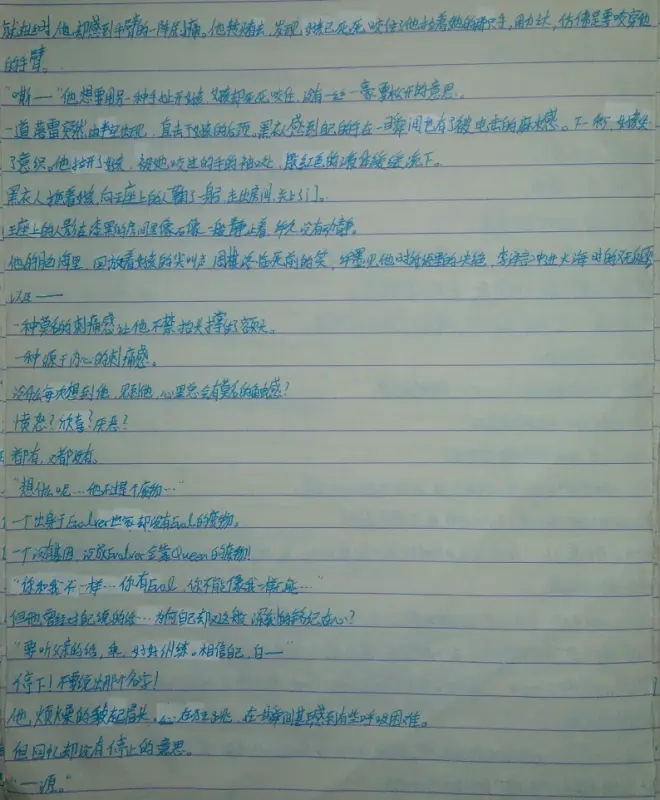 就在这时，他却感到手臂的一阵剧痛。他转过头去，发现，女孩已死死咬住了他拉着她的那只手，用力过大，仿佛是要咬穿他
的手臂。
"嘶——"他想要用另一种手扯开女孩，女孩却死死咬住，没有一丝一毫要松开的意思。
一道落雷突然出现，直击女孩的后颈，黑衣人感到自己的手在一瞬间也有了被电击的麻木感。下一秒，女孩失
了意识。他拉开了女孩，被她咬过的手的袖口处，暗红色的液体缓缓流下。
黑衣人拖着女孩，向王座上的人鞠了一躬，走出房间，关上了门。
王座上的人影在漆黑的房间里像石像一般静止着，许久没有动静。
他的脑海里，回放着女孩的尖叫声，周 死前的笑，
以及——
一种莫名的刺痛感让他不禁抬头撑住了额头。
一种源于内心的刺痛感。
为什么每次想到他，见到他，心里总会有莫名的 感？
愤怒？欣喜？厌恶？
都有，又都没有。
"想什么呢…他不过是个废物…"
一个出身于Evolver世家却没有Evol的废物。
一个 ，没成Evolver全靠Queen的废物！
"你和我不一样…你有Evol，你不能像我一样 …"
但他曾经对自己说的话…为何自己却又这般深刻的铭记在心？
"要听父亲的话，乖，好好训练。相信自己，白——"
停下！不要说出那个名字！
他，烦燥的皱起眉头，心 在狂跳，在一瞬间甚至感到有些呼吸困难。
但回忆却没有停止的意思。
"——源。"